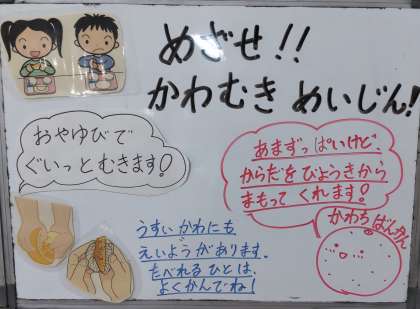 めざせ!!
かわむき めいじん!
おやゆびで
ぐいっとむきます!
あまずっぱいけど、
からだをびょうきから
まもってくれます!
かわちばんかん
うすいかわにも
えいようがあります。
たべれるひとは、
よくかんでね!